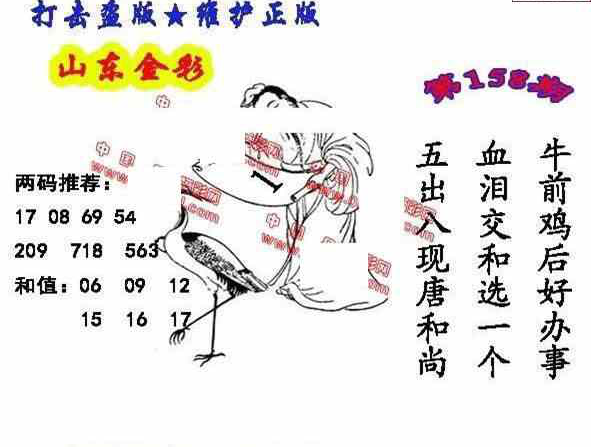 打击盗版★维护正版
山东金彩
第158期
牛前鸡后好办事
血泪交和选一个
五出入现唐和尚
两码推荐：
17 08 69 54
209 718 563
和值：06 09 12
15 16 17
1
中国
www.
中国
www.
彩网
.com